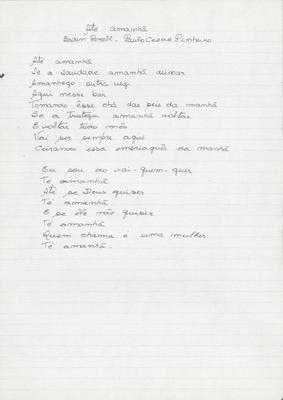 Até amanhã
Baden Powell - Paulo Cesar Pinheiro
Até amanhã
Se a saudade amanhã deixar
Amanheço outra vez
Aqui nesse bar
Tomando esse chá das seis da manhã
Se a tristeza amanhã voltar
E voltar todo mês
Vai ser sempre aqui
Curando essa embriaguês da manhã
Eu sou do vai-quem-quer
Té amanhã
Até se Deus quiser
Té amanhã
E se ele não quiser
Té amanhã
Quem chama é uma mulher
Té amanhã.